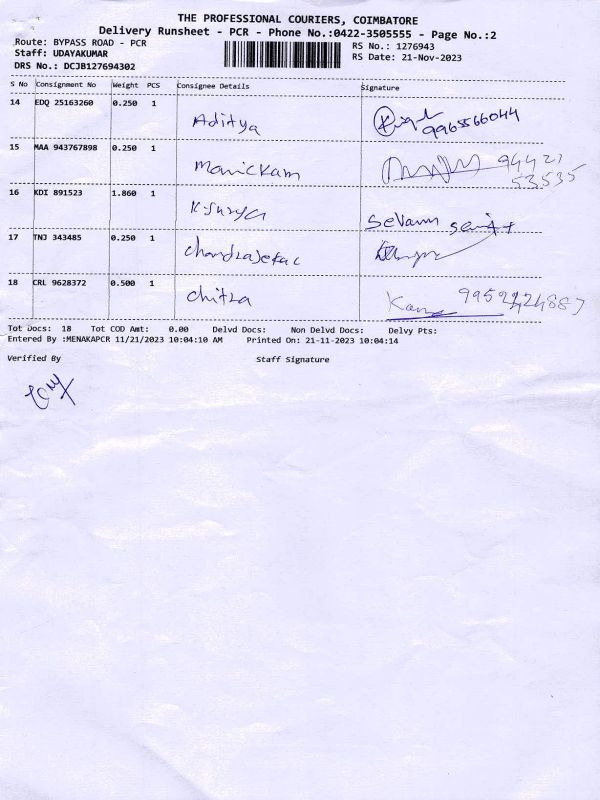 THE PROFESSIONAL COURIERS, COIMBATORE
Delivery Runsheet - PCR - Phone No.:0422-3505555 - Page No.:2
Route: BYPASS ROAD - PCR
RS No.: 1276943
Staff: UDAYAKUMAR
RS Date: 21-Nov-2023
DRS No.: DCJB127694302
S No Consignment No Weight PCS Consignee Details Signature
14 EDQ 25163260 0.250 1 Aditya 9965566044
15 MAA 943767898 0.250 1 Manickam 94421
53535
16 KDI 891523 1.860 1 K.Surya Selvam
17 TNJ 343485 0.250 1 Chandrasekar
18 CRL 9628372 0.500 1 Chitra
Tot Docs: 18 Tot COD Amt: 0.00 Delvd Docs: Non Delvd Docs: Delvy Pts:
Entered By :MENAKAPCR 11/21/2023 10:04:10 AM Printed On: 21-11-2023 10:04:14
Verified By Staff Signature